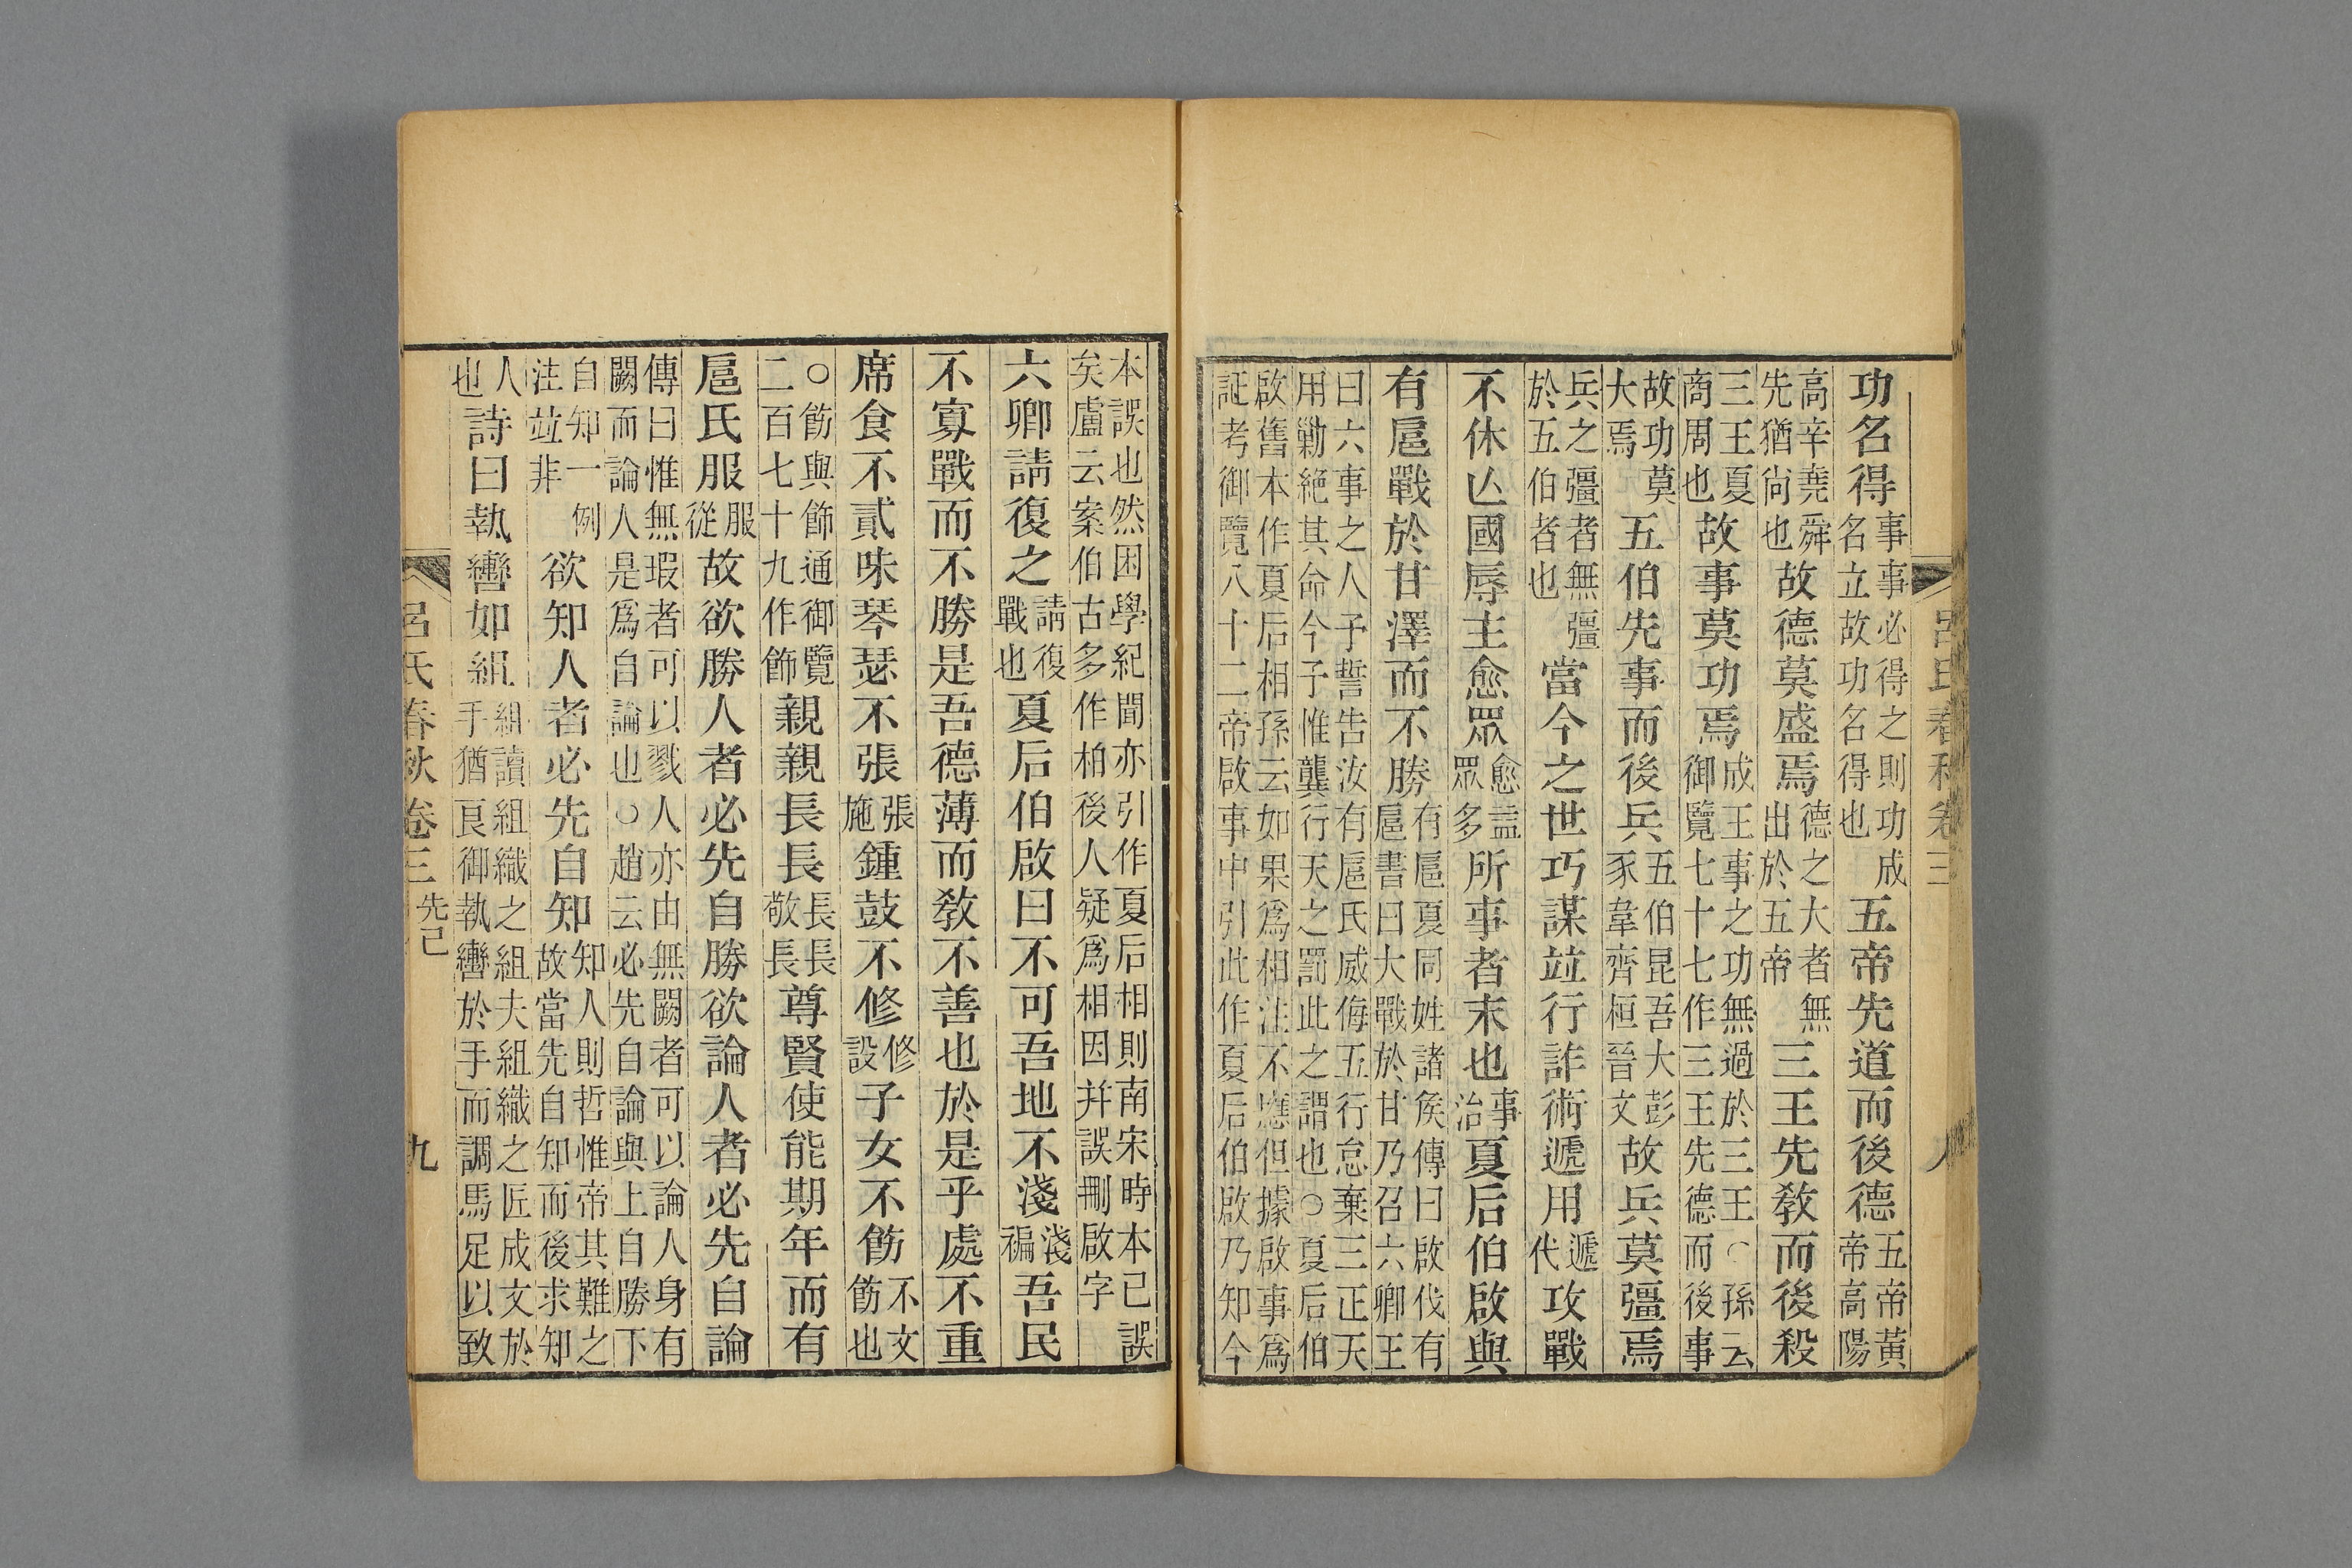 功名得事事必得之則功成名立故功名得也五帝先道而後德五帝黃帝高陽
高辛堯舜先猶尚也故德莫盛焉德之大者無出於五帝三王先教而後殺
三王夏商周也故事莫功焉成王事之功無過於三王○孫云御覽七十七作三王先德而後事
故功莫大焉五伯先事而後兵五伯昆吾大彭豕韋齊桓晉文故兵莫彊焉
兵之彊者無彊於五伯者也當今之世巧謀竝行詐術遞用遞代攻戰
不休亾國辱主愈眾愈益眾多所事者末也事治夏后伯啟與
有扈戰於甘澤而不勝有扈夏同姓諸矦傳曰啟伐有扈書曰大戰於甘乃召六卿王
曰六事之人予誓告汝有扈氏威侮五行怠棄三正天用勦絕其命今予惟龔行天之罰此之謂也○夏后伯
啟舊本作夏后相孫云如果爲相注不應但據啟事爲証考御覽八十二帝啟事中引此作夏后伯啟乃知今
呂氏春秋卷三 八
本誤也然困學紀聞亦引作夏后相則南宋時本已誤矣盧云案伯古多作柏後人疑爲相因并誤刪啟字
六卿請復之請復戰也夏后伯啟曰不可吾地不淺淺褊吾民
不寡戰而不勝是吾德薄而教不善也於是乎處不重
席食不貳味琴瑟不張張施鍾鼓不修修設子女不飭不文飭也
○飭與飾通御覽二百七十九作飾親親長長長長敬長尊賢使能期年而有
扈氏服服從故欲勝人者必先自勝欲論人者必先自論
傳曰惟無瑕者可以戮人亦由無闕者可以論人身有闕而論人是爲自論也○趙云必先自論與上自勝下
自知一例注竝非欲知人者必先自知知人則哲惟帝其難之故當先自知而後求知
人也詩曰執轡如組組讀組織之組夫組織之匠成文於手猶良御執轡於手而調馬足以致
呂氏春秋卷三 先己 九